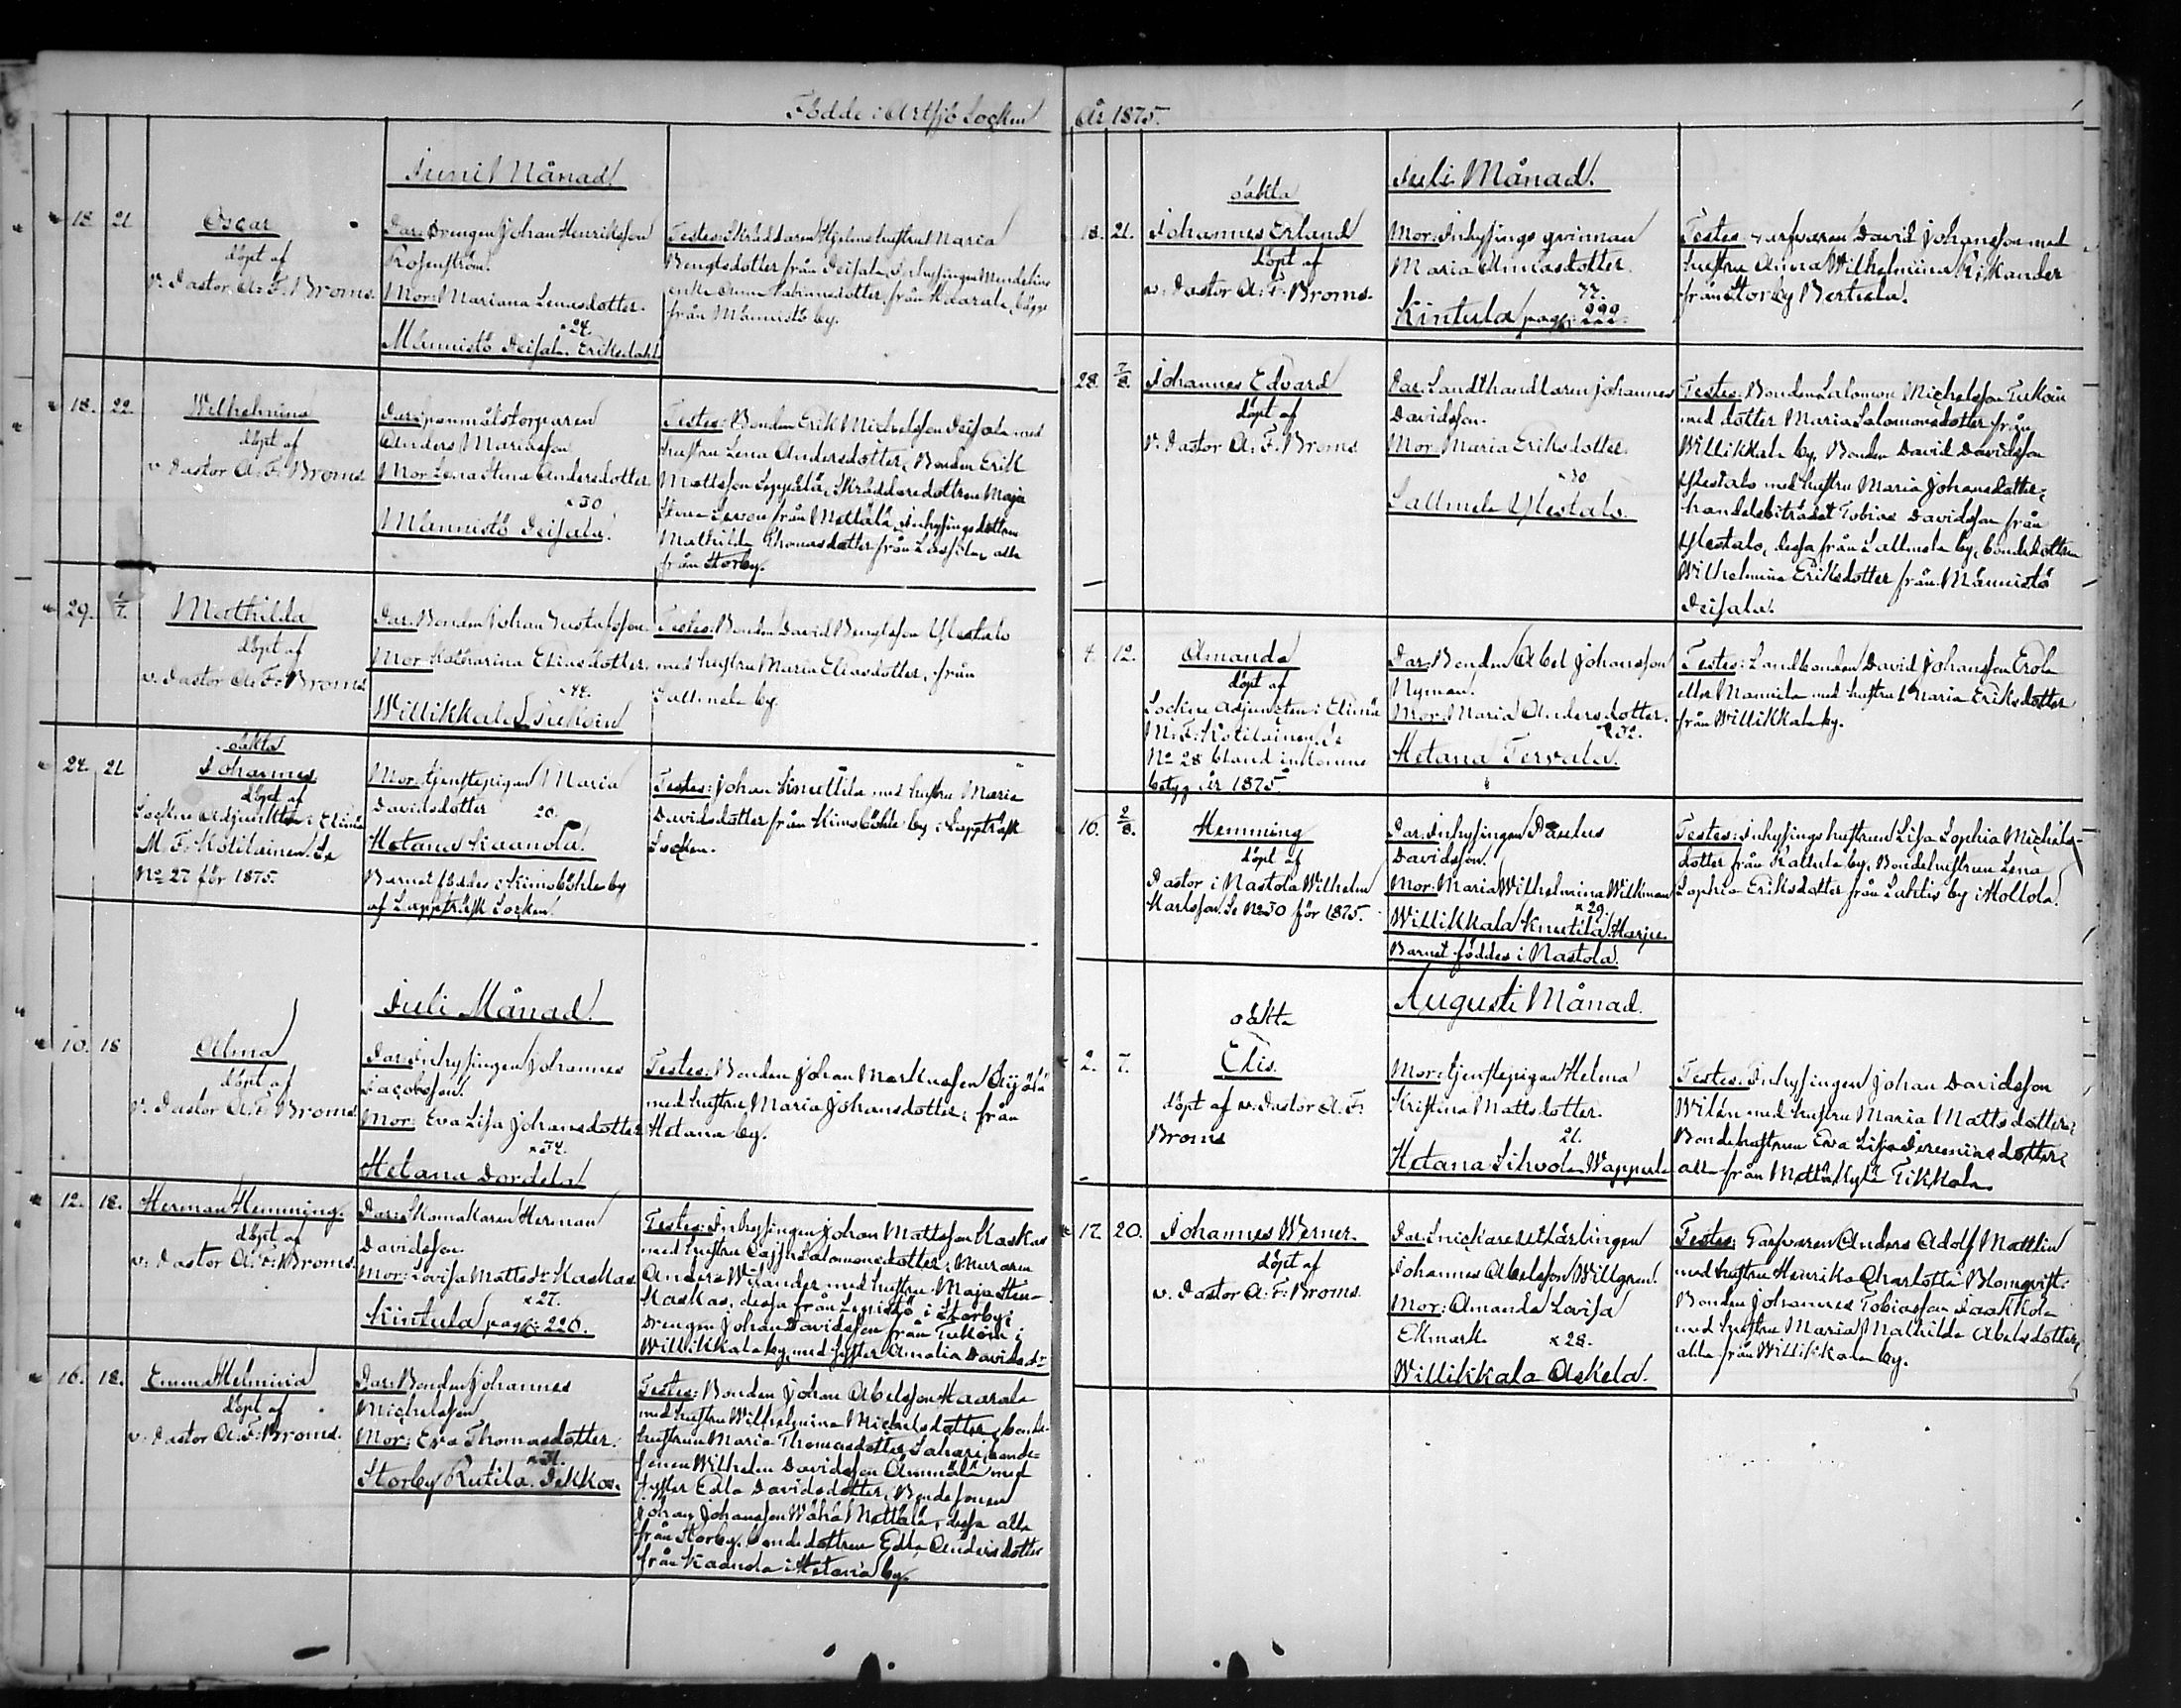 Födde i Artsjö Socken
År 1875.
Junii Månad.
18. 21
Oscar
döpt af
v. Pastor A. F. Broms.
Par: Drengen Johan Henriksson
Rosenström.
Mor: Mariana Lenasdotter.
24.
Männistö Peisala Eriksdahl
Testes: Skräddaren Hjelms hustru Maria
Bengtsdotter från Peisala, Inhysingen
enka Anna Fabiansdotter, från Haarala, bägge
från Männistö by.
18. 22.
Wilhelmina
döpt af
v. Pastor A. F. Broms
Par: spanmålstorparen
Anders Mariasson
Mor: Lena Stina Andersdotter
30
Männistö Peisala.
Testes: Bonden Erik Michelsson Peisala med
hustru Lena Andersdotter, Bonden Erik
Mattsson Seppälä, Skräddaredottren Maja
Stina från Mattälä, Inhysingsdottren
Mathilda Thomasdotter från alla
från Storby.
29. 1/7.
Mathilda
döpt af
v. Pastor A. F. Broms.
Par: Bonden Johan Gustafsson.
Mor: Katharina Eliasdotter.
44.
Willikkala Tukoin
Testes: Bonden David Bengtsson Ylestalo
med hustru Maria Eliasdotter, från
Sallmela by.
24. 21
oäkta
Johannes
döpt af
Sockne Adjunkten i Elimä
M. F. Kotilainen. Se
No 27 för 1875.
Mor: tjenstepigan Maria
Davidsdotter 20.
Hetana Kaanola.
Barnet föddes i Kimoböhle by
af Lappträsk Socken.
Testes: Johan Simettila med hustru Maria
Davidsdotter från Kimoböhle by i Lappträsk
Socken.
Juli Månad.
10. 18
Alma
döpt af
v. Pastor A. F. Broms.
Par: Inhysingen Johannes
Jacobsson.
Mor: Eva Lisa Johansdotter
34.
Hetana Pordela
Testes: Bonden Johan Markusson
med hustru Maria Johansdotter, från
Hetana by.
12. 18.
Herman Hemming.
döpt af
v. Pastor A. F. Broms.
Par: Skomakaren Herman
Davidsson.
Mor: Lovisa Mattsdr Kaskas.
27.
Kintula pag: 220.
Testes: Inhysingen Johan Mattsson Kaskas
med hustru Cajsa Salomonsdotter, Muraren
Anders Wilander med hustru Maja Stina
Kaskas, dessa från i Storby;
Drengen Johan Davidsson från Tukoin i
Willikkala by, med syster Amalia Davidsdr
16. 18.
Emma Helmina
döpt af
v. Pastor A. F. Broms.
Par: Bonden Johannes
Michelsson
Mor: Eva Thomasdotter.
31.
Storby Rutila. Pekkos.
Testes: Bonden Johan Abelsson Haarala
med hustru Wilhelmina Michelsdotter, bonde-
hustrun Maria Thomasdotter Sahari, bonde-
sonen Wilhelm Davidsson Ammälä med
syster Edla Davidsdotter, Bondesonen
Johan Johansson Wähä Mattälä, dessa alla
från Storby, bondedottren Edla Andersdotter
från Kaanola i Hetana by.
Juli Månad.
oäkta
18. 21.
Johannes Erland
döpt af
v. Pastor A. F. Broms.
Mor: Inhysings qvinnan
Maria Annasdotter.
Kintula pag: 222.
Testes: Garfvaren David Johansson med
hustru Anna Wilhelmina Rikander
från Storby Bertula.
28. 7/8.
Johannes Edvard
döpt af
v. Pastor A. F. Broms
Par: Landthandlaren Johannes
Davidsson.
Mor: Maria Eriksdotter.
30
Sallmela Ylestalo.
Testes: Bonden Salomon Michelsson Tukoin
med dotter Maria Salomonsdotter från
Willikkala by, Bonden David Davidsson
Ylestalo med hustru Maria Johansdotter,
handelsbiträdet Tobias Davidsson från
Ylestalo, dessa från Sallmela by, bondedottren
Wilhelmina Eriksdotter från Männistö
Peisala.
4. 12.
Amanda
döpt af
Sockne Adjunkten i Elimä
M. F. Kotilainen. Se
No 28 bland inkomne
betyg år 1875
Par: Bonden Abel Johansson
Nyman.
Mor: Maria Andersdotter.
32.
Hetana Tervala.
Testes: Landbonden David Johansson Erola
eller Mannila med hustru Maria Eriksdotter
från Willikkala by.
10. 2/8.
Hemming
döpt af
Pastor i Nastola Wilhelm
Karlsson. Se No 30 för 1875.
Par: Inhysingen Paulus
Davidsson.
Mor: Maria Wilhelmina Willman
29.
Willikkala Knutila. Harju.
Barnet föddes i Nastola.
Testes: Inhysings hustrun Lisa Sophia Michels-
dotter från Kallula by, Bondehustrun Lena
Sophia Eriksdotter från Lahtis by i Hollola.
Augusti Månad.
oäkta
2. 7.
Elis.
döpt af v. Pastor A. F.
Broms
Mor: tjenstepigan Helena
Kristina Mattsdotter.
21.
Hetana Sihvola Wappula
Testes: Inhysingen Johan Davidsson
Wilén med hustru Maria Mattsdotter,
Bondehustrun Eva Lisa Jeremiasdotter,
alla från Mattila Tikkala.
17. 20.
Johannes Werner.
döpt af
v. Pastor A. F. Broms.
Par: Snickarelärlingen
Johannes Abelsson Willgren.
Mor: Amanda Lovisa
Ekmark. 28.
Willikkala Askela.
Testes: Garfvaren Anders Adolf Mattlin
med hustru Henrika Charlotta Blomqvist.
Bonden Johannes Tobiasson Jaakkola
med hustru Maria Mathilda Abelsdotter,
alla från Willikkala by.